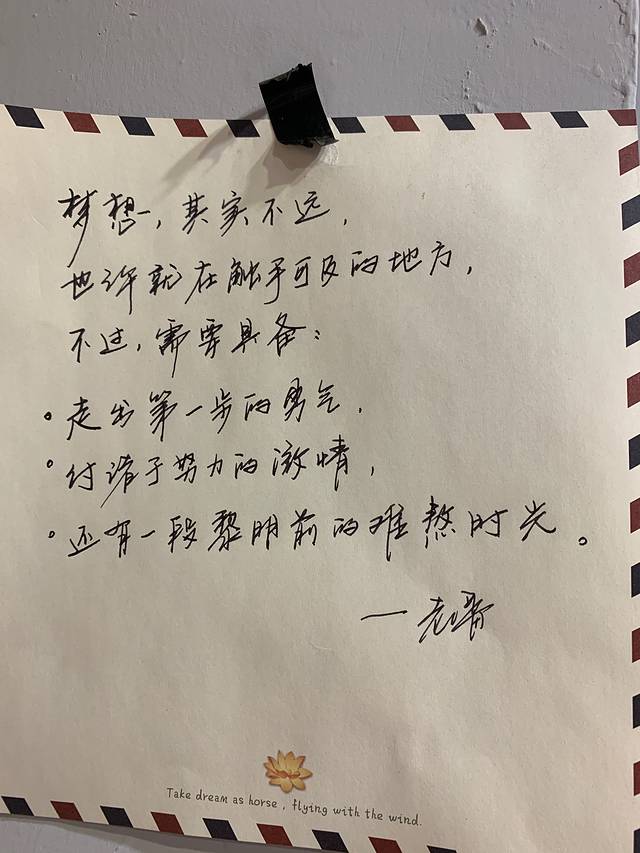 梦想，其实不远，
也许就在触手可及的地方，
不过，需要具备：
。走出第一步的勇气，
。付诸于努力的激情，
。还有一段黎明前的难熬时光。
— 老
Take dream as horse , flying with the wind.